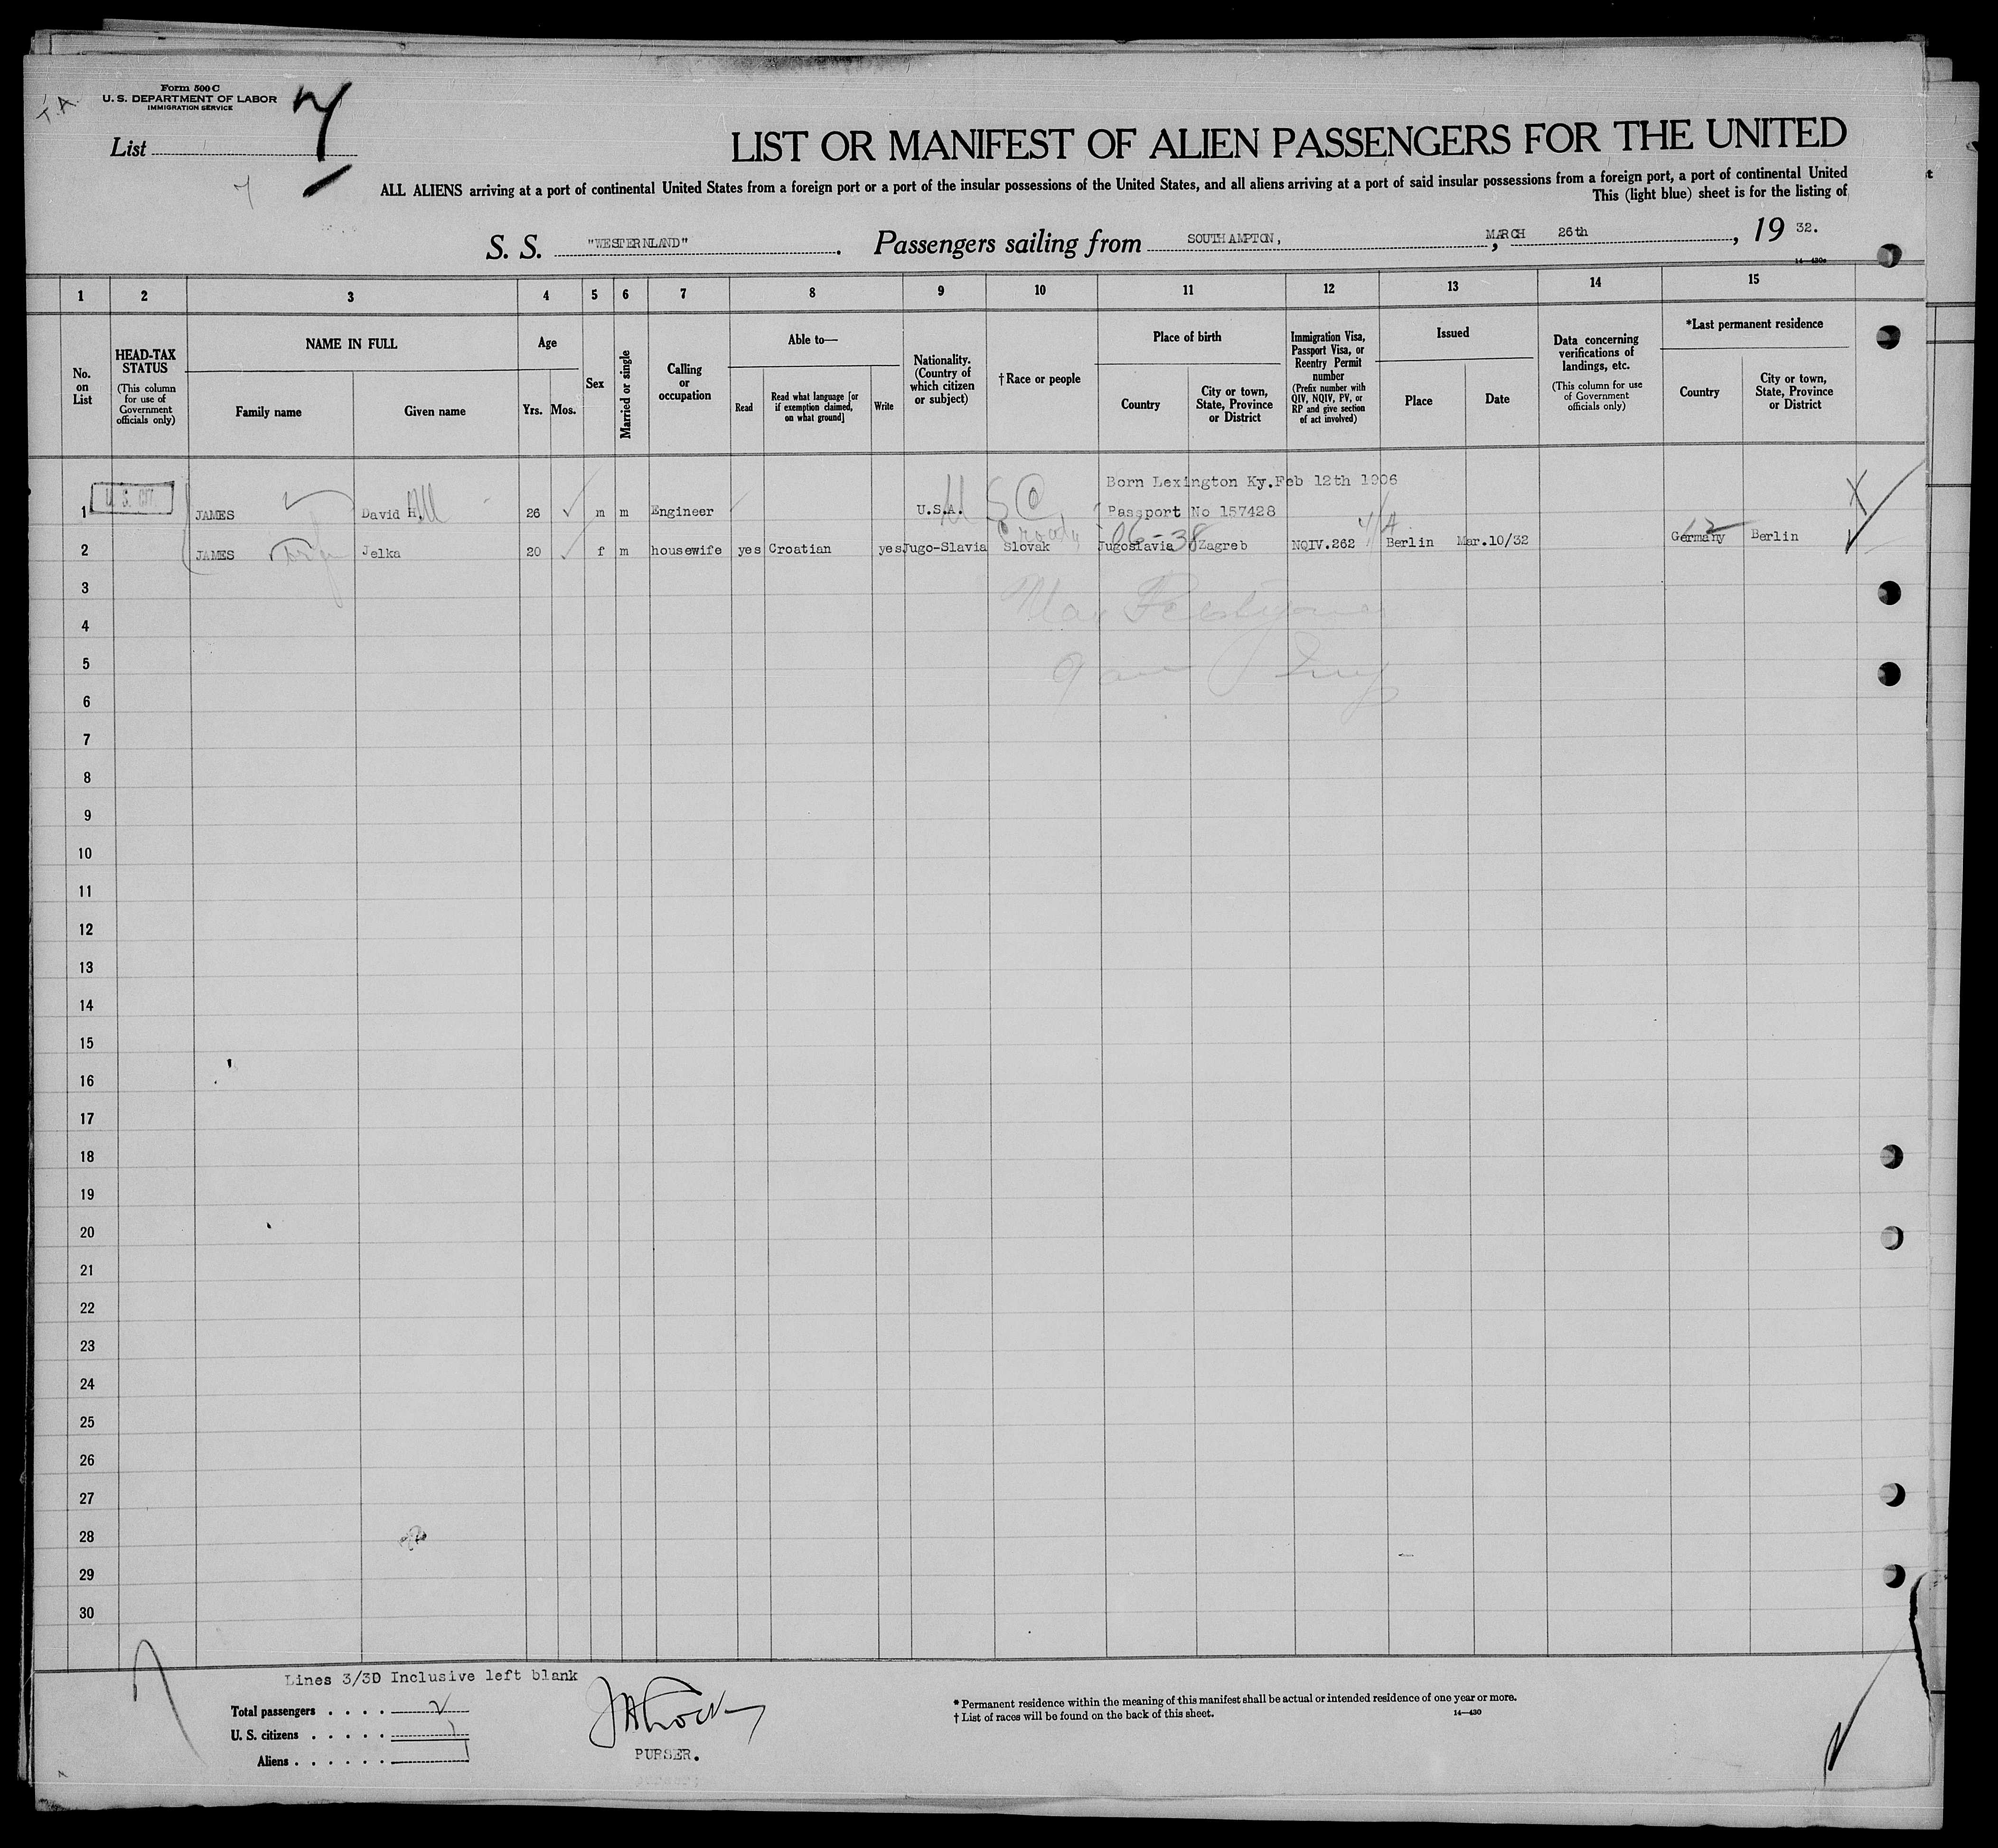 Form 500 C
U. S. DEPARTMENT OF LABOR
IMMIGRATION SERVICE
List 7
7
LIST OR MANIFEST OF ALIEN PASSENGERS FOR THE UNITED
ALL ALIENS arriving at a port of continental United States from a foreign port or a port of the insular possessions of the United States, and all aliens arriving at a port of said insular possessions from a foreign port, a port of continental United
This (light blue) sheet is for the listing of
S. S. "WESTERNLAND". Passengers sailing from SOUTHAMPTON, MARCH 26th, 19 32.
1 2 3 4 5 6 7 8 9 10 11 12 13 14 15
No. on List
HEAD-TAX STATUS (This column for use of Government officials only)
NAME IN FULL
Family name
Given name
Age
Yrs. Mos.
Sex
Married or single
Calling or occupation
Able to—
Read
Read what language [or if exemption claimed, on what ground]
Write
Nationality. (Country of which citizen or subject)
†Race or people
Place of birth
Country
City or town, State, Province or District
Immigration Visa, Passport Visa, or Reentry Permit number (Prefix number with QIV, NQIV, PV, or RP and give section of act involved)
Issued
Place
Date
Data concerning verifications of landings, etc. (This column for use of Government officials only)
*Last permanent residence
Country
City or town, State, Province or District
Born Lexington Ky.Feb 12th 1906
1 U. S. CIT JAMES David H. 26 m m Engineer U.S.A. U S C Passport No 157428
06-38 4/A 12
2 JAMES Jelka 20 f m housewife yes Croatian yes Jugo-Slavia Slovak Jugoslavia Zagreb NQIV.262 Berlin Mar.10/32 Germany Berlin
3
4
5
6
7
8
9
10
11
12
13
14
15
16
17
18
19
20
21
22
23
24
25
26
27
28
29
30
Lines 3/3D Inclusive left blank
Total passengers . . . . 2
U. S. citizens . . . . . 1
Aliens . . . . . . 1
PURSER.
* Permanent residence within the meaning of this manifest shall be actual or intended residence of one year or more.
† List of races will be found on the back of this sheet.
14—430